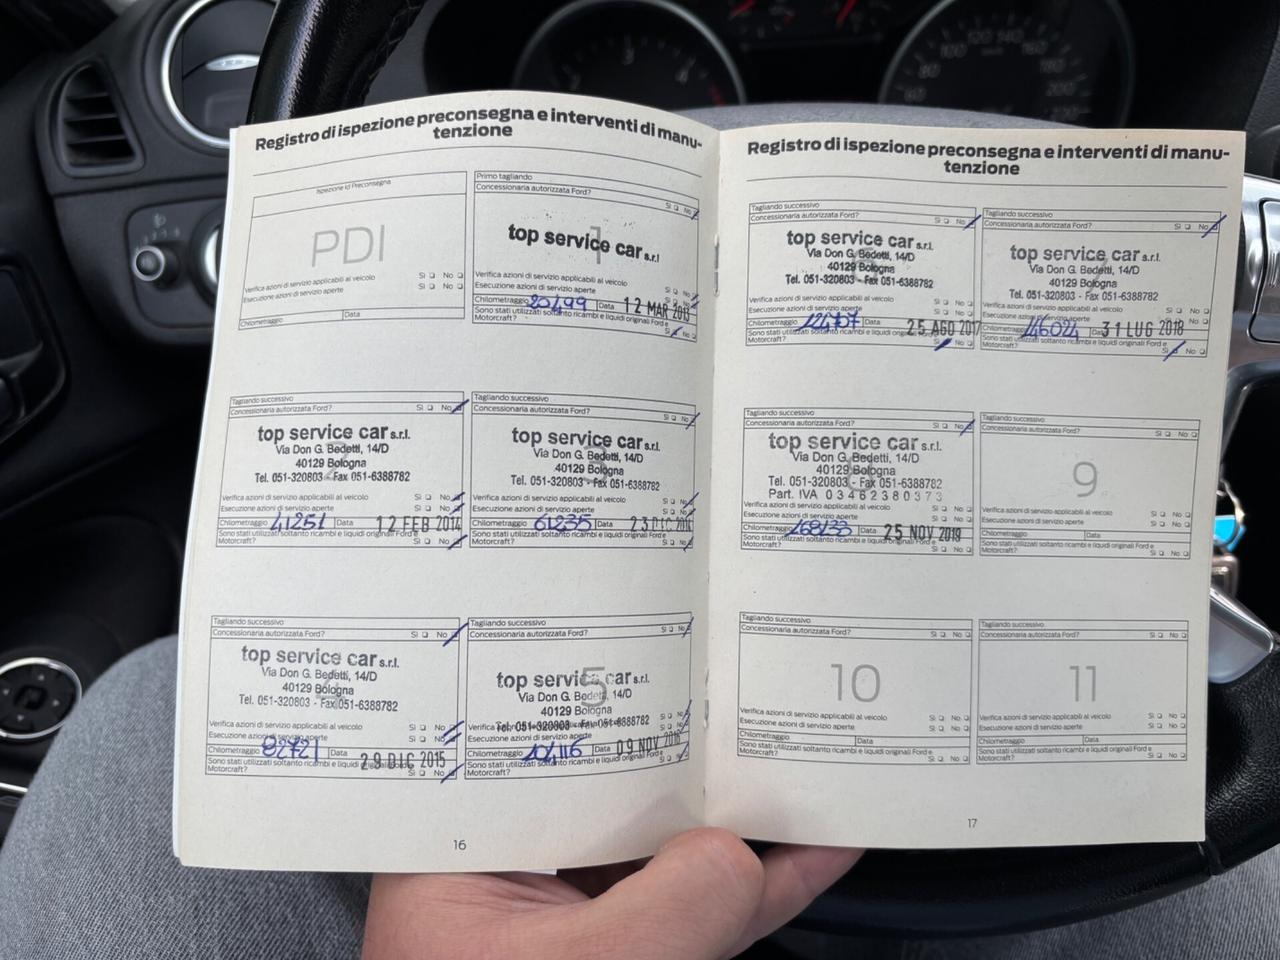 Registro di ispezione preconsegna e interventi di manu-
tenzione
Ispezione Id Preconsegna
PDI
Verifica azioni di servizio applicabili al veicolo Sì No
Esecuzione azioni di servizio aperte Sì No
Chilometraggio Data
Primo tagliando
Concessionaria autorizzata Ford?
Sì No
1
top service car s.r.l
Verifica azioni di servizio applicabili al veicolo
Esecuzione azioni di servizio aperte
Chilometraggio 20499 Data 12 MAR 2013
Sono stati utilizzati soltanto ricambi e liquidi originali Ford e
Motorcraft? Sì No
Tagliando successivo
Concessionaria autorizzata Ford? Sì No
2
top service car s.r.l.
Via Don G. Bedetti, 14/D
40129 Bologna
Tel. 051-320803 - Fax 051-6388782
Verifica azioni di servizio applicabili al veicolo Sì No
Esecuzione azioni di servizio aperte Sì No
Chilometraggio 41251 Data 12 FEB 2014
Sono stati utilizzati soltanto ricambi e liquidi originali Ford e
Motorcraft? Sì No
Tagliando successivo
Concessionaria autorizzata Ford? Sì No
top service car s.r.l.
Via Don G. Bedetti, 14/D
40129 Bologna
Tel. 051-320803 - Fax 051-6388782
Verifica azioni di servizio applicabili al veicolo Sì No
Esecuzione azioni di servizio aperte Sì No
Chilometraggio 61235 Data 23 DIC 2014
Sono stati utilizzati soltanto ricambi e liquidi originali Ford e
Motorcraft? Sì No
Tagliando successivo
Concessionaria autorizzata Ford? Sì No
4
top service car s.r.l.
Via Don G. Bedetti, 14/D
40129 Bologna
Tel. 051-320803 - Fax 051-6388782
Verifica azioni di servizio applicabili al veicolo Sì No
Esecuzione azioni di servizio aperte Sì No
Chilometraggio Data 29 DIC 2015
Sono stati utilizzati soltanto ricambi e liquidi originali Ford e
Motorcraft? Sì No
Tagliando successivo
Concessionaria autorizzata Ford? Sì No
5
top service car s.r.l.
Via Don G. Bedetti, 14/D
40129 Bologna
Tel. 051-320803 - Fax 051-6388782
Verifica azioni di servizio applicabili al veicolo
Esecuzione azioni di servizio aperte
Chilometraggio Data 09 NOV 2016
Sono stati utilizzati soltanto ricambi e liquidi originali Ford e
Motorcraft? Sì No
16
Registro di ispezione preconsegna e interventi di manu-
tenzione
Tagliando successivo
Concessionaria autorizzata Ford? Sì No
top service car s.r.l.
Via Don G. Bedetti, 14/D
40129 Bologna
Tel. 051-320803 - Fax 051-6388782
Verifica azioni di servizio applicabili al veicolo Sì No
Esecuzione azioni di servizio aperte Sì No
Chilometraggio Data 25 AGO 2017
Sono stati utilizzati soltanto ricambi e liquidi originali Ford e
Motorcraft? Sì No
Tagliando successivo
Concessionaria autorizzata Ford? Sì No
7
top service car s.r.l.
Via Don G. Bedetti, 14/D
40129 Bologna
Tel. 051-320803 - Fax 051-6388782
Verifica azioni di servizio applicabili al veicolo Sì No
Esecuzione azioni di servizio aperte Sì No
Chilometraggio 146024 Data 31 LUG 2018
Sono stati utilizzati soltanto ricambi e liquidi originali Ford e
Motorcraft? Sì No
Tagliando successivo
Concessionaria autorizzata Ford? Sì No
top service car s.r.l.
Via Don G. Bedetti, 14/D
40129 Bologna
Tel. 051-320803 - Fax 051-6388782
Part. IVA 03462380373
Verifica azioni di servizio applicabili al veicolo Sì No
Esecuzione azioni di servizio aperte Sì No
Chilometraggio 168133 Data 25 NOV 2019
Sono stati utilizzati soltanto ricambi e liquidi originali Ford e
Motorcraft? Sì No
Tagliando successivo
Concessionaria autorizzata Ford? Sì No
9
Verifica azioni di servizio applicabili al veicolo Sì No
Esecuzione azioni di servizio aperte Sì No
Chilometraggio Data
Sono stati utilizzati soltanto ricambi e liquidi originali Ford e
Motorcraft? Sì No
Tagliando successivo
Concessionaria autorizzata Ford? Sì No
10
Verifica azioni di servizio applicabili al veicolo Sì No
Esecuzione azioni di servizio aperte Sì No
Chilometraggio Data
Sono stati utilizzati soltanto ricambi e liquidi originali Ford e
Motorcraft? Sì No
Tagliando successivo
Concessionaria autorizzata Ford? Sì No
11
Verifica azioni di servizio applicabili al veicolo Sì No
Esecuzione azioni di servizio aperte Sì No
Chilometraggio Data
Sono stati utilizzati soltanto ricambi e liquidi originali Ford e
Motorcraft? Sì No
17